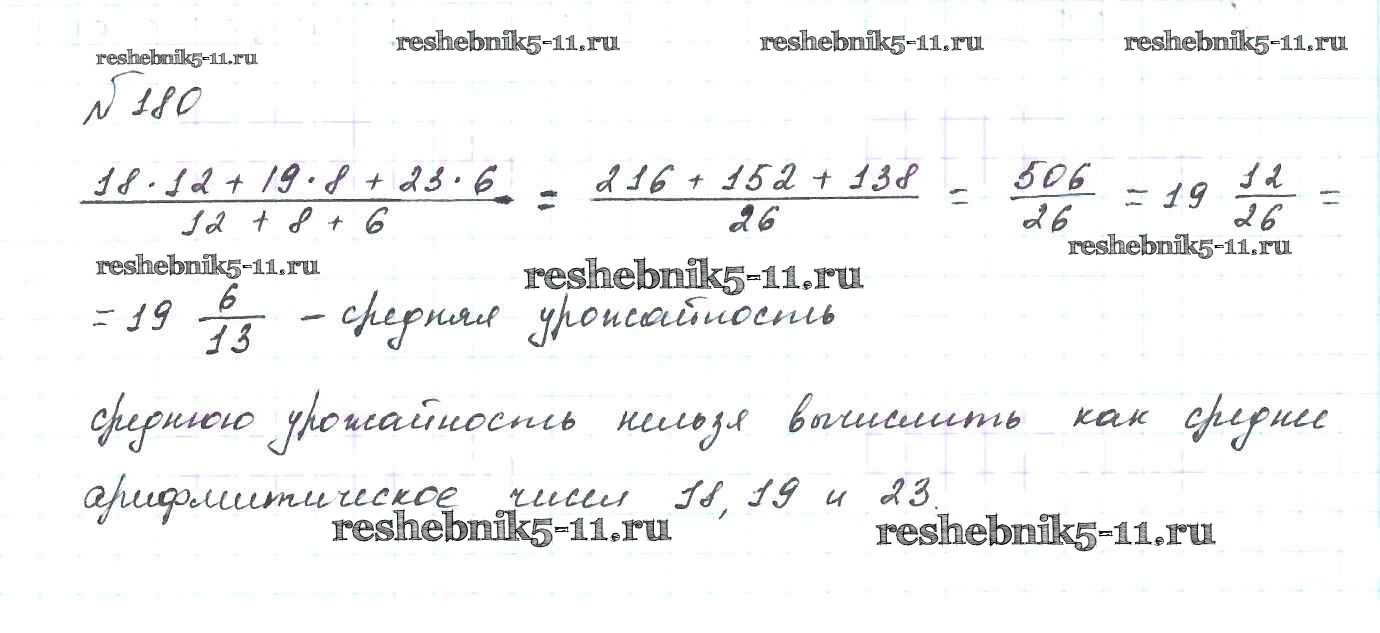 reshebnik5-11.ru reshebnik5-11.ru reshebnik5-11.ru reshebnik5-11.ru
№ 180
18·12 + 19·8 + 23·6 / 12 + 8 + 6 = 216 + 152 + 138 / 26 = 506 / 26 = 19 12/26 =
reshebnik5-11.ru reshebnik5-11.ru reshebnik5-11.ru
= 19 6/13 – средняя урожайность
среднюю урожайность нельзя вычислить как среднее
арифмитическое чисел 18, 19 и 23.
reshebnik5-11.ru reshebnik5-11.ru